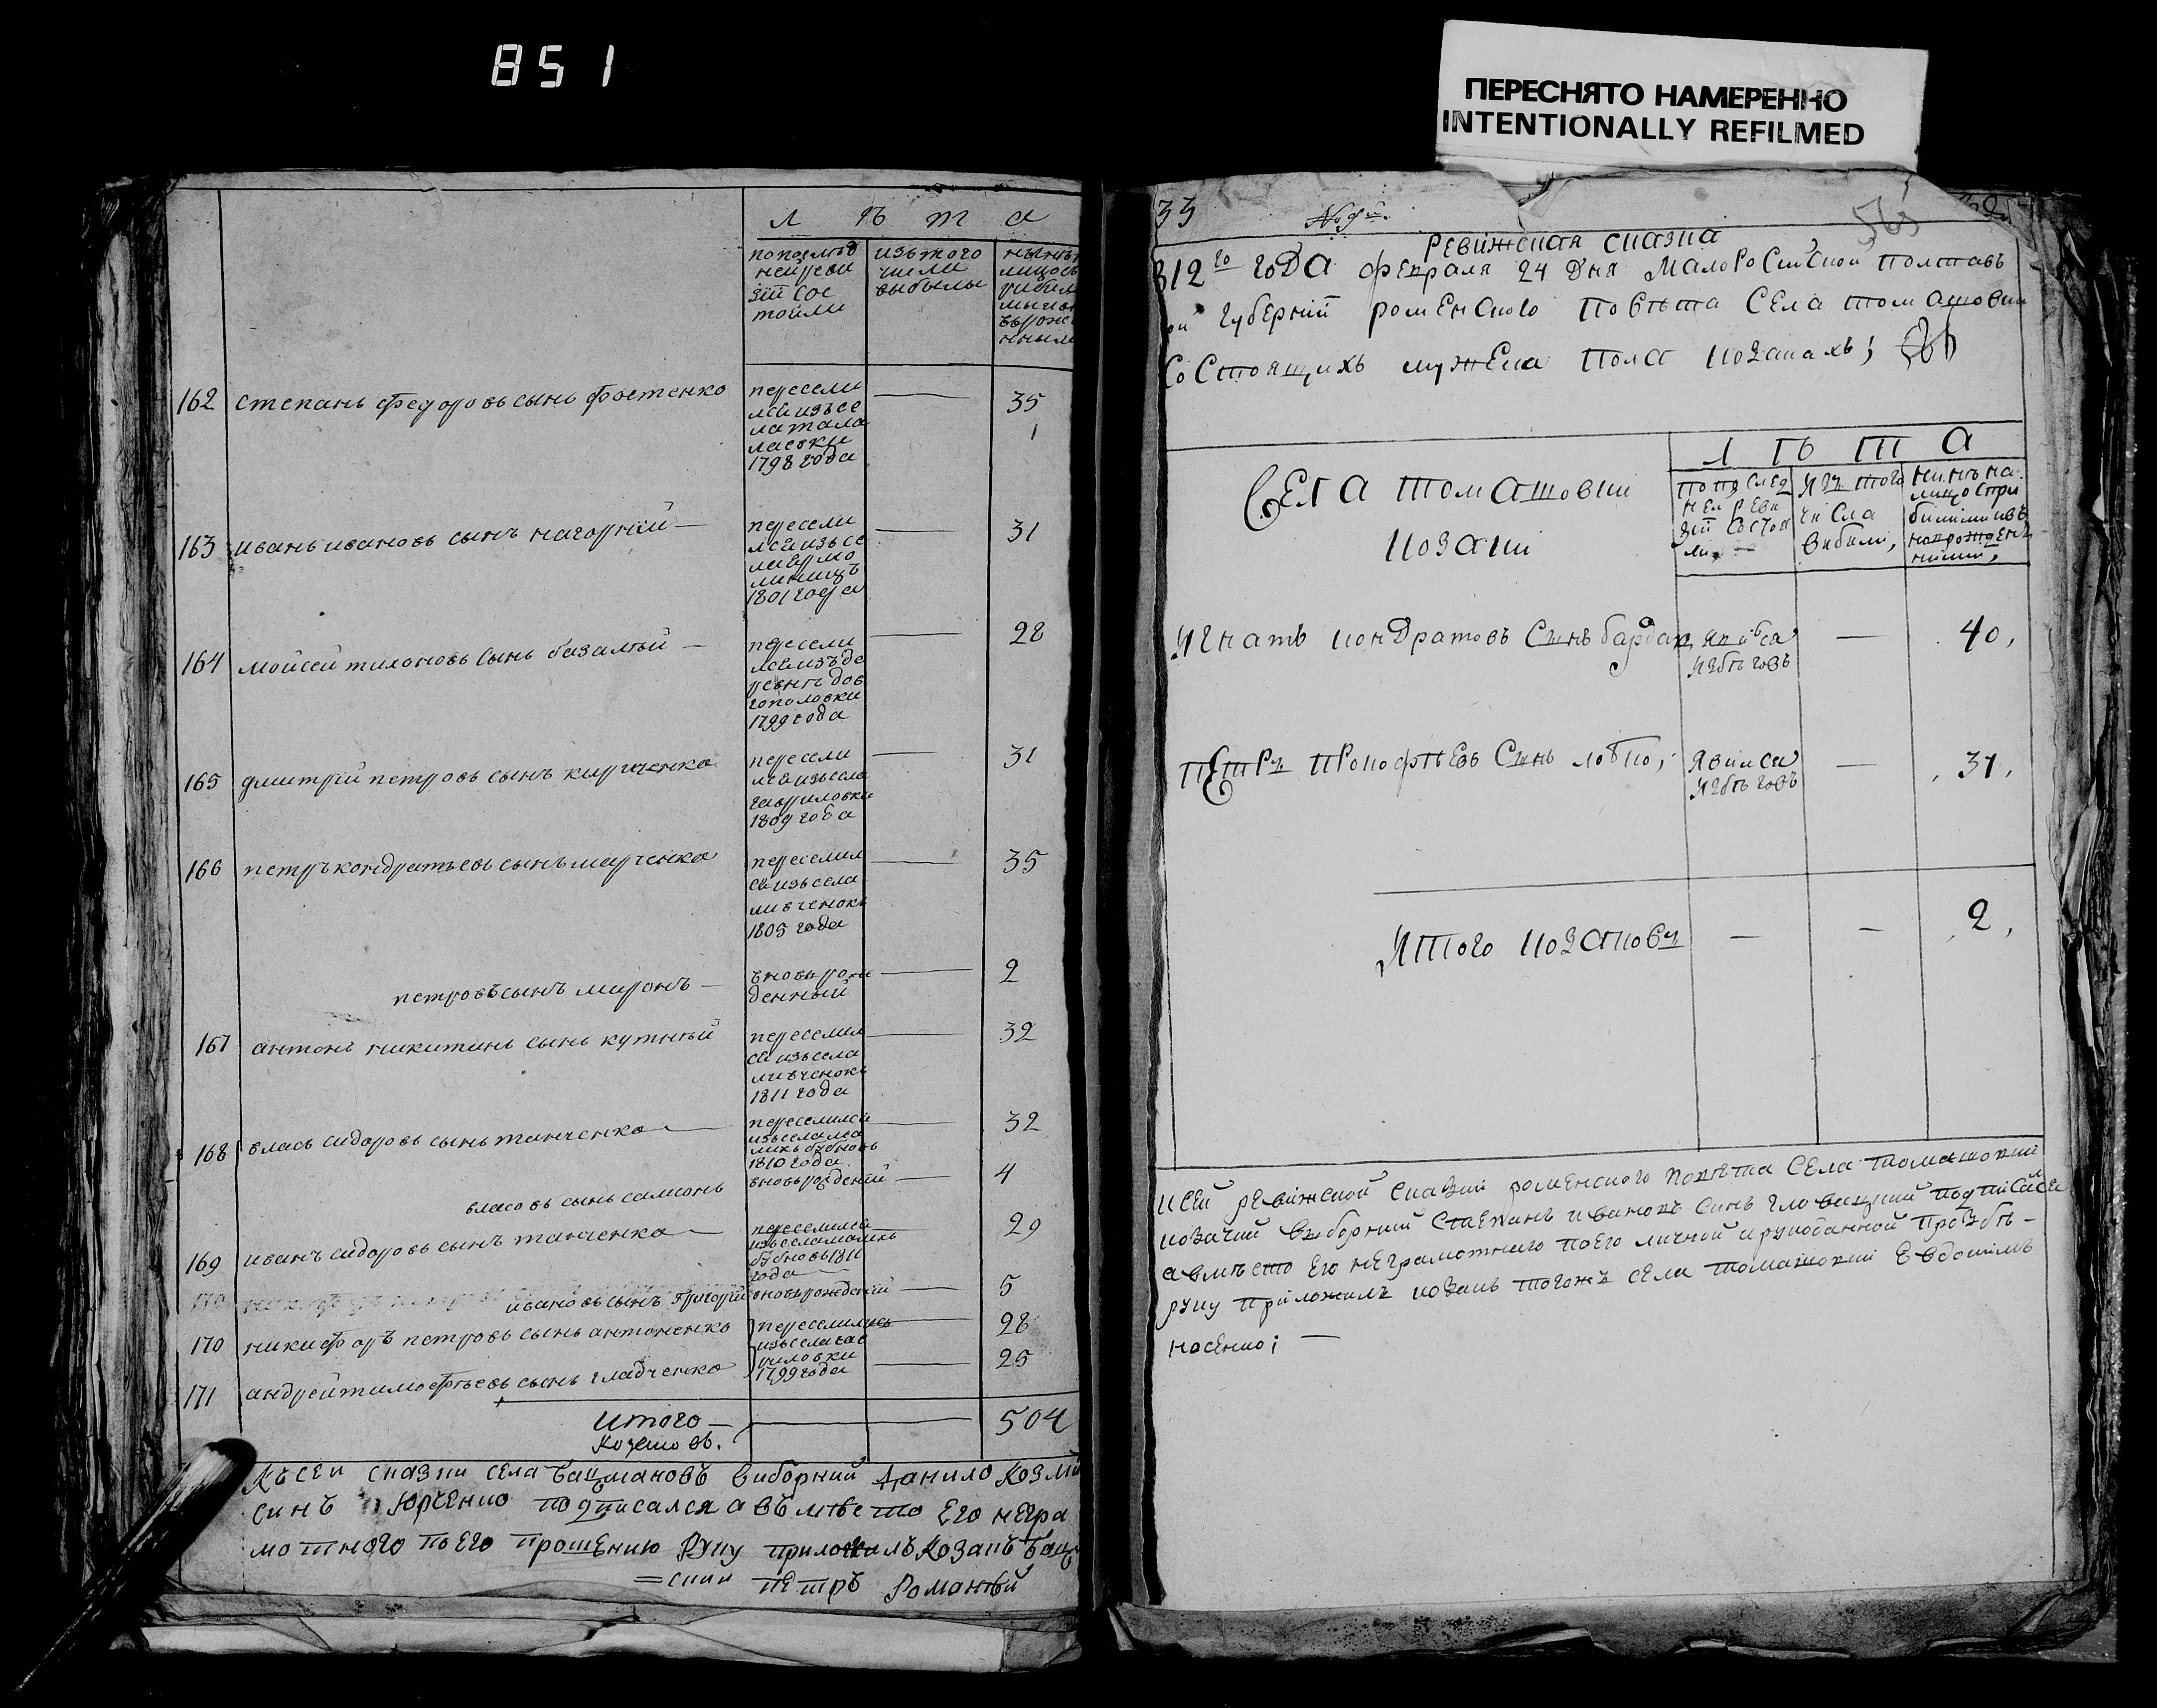 851
ПЕРЕСНЯТО НАМЕРЕННО
INTENTIONALLY REFILMED
л ѣ т а
попослѣд
ней реви
зіи сос
тояли
изътого
числа
выбылы
162 степанъ федоровъ сынъ фостенко
пересели
лся изъ се
ла тала
лаевки
1798 года
—
35
1
163 иванъ ивановъ сынъ нагорній —
пересели
лся изъ се
1801 года
—
31
164 мойсей тихоновъ сынъ базалѣй —
пересели
лся изъ де
ревнѣ дов
гополовки
1799 года
—
28
165 дмитрій петровъ сынъ кириченко
пересели
лся изъ села
гавриловки
1809 года
—
31
166 петръ кондратьевъ сынъ марченко
переселил
ся изъ села
липченокъ
1805 года
—
35
петровъ сынъ миронъ —
вновь рож
денный
—
2
167 антонъ никитинъ сынъ кутнѣй
переселил
ся изъ села
липченокъ
1811 года
—
32
168 власъ сидоровъ сынъ танченко —
переселился
изъ села ма
лихъ бубновъ
1810 года
—
32
власовъ сынъ самсонъ
вновь рожденій —
4
169 иванъ сидоровъ сынъ танченко —
переселился
изъ села малихъ
бубновъ 1811
года —
29
ивановъ сынъ григорій
вновь рожденій —
5
170 никифоръ петровъ сынъ антоненко
28
171 андрей тимофѣевъ сынъ гладченко
переселились
изъ села гав
риловки
1799 года
—
25
итого —
козаковъ.
—
504
Къ сей сказки села Бацмановъ виборний данило Козми
синъ Юрченко подписался а въ мѣсто его негра
мотного по его прошению руку приложилъ козакъ Бацм
=скии петръ Романѣй
33
№ 9й.
Ревижская сказка
812го года февраля 24 дня малоросийской полтавъ
ой губерніи роменского повѣта села томашовки
состоящихъ мужеска пола козакахъ;
Села томашовки
козаки
Л Ѣ Т А
по послед
ней реви
зіи состоя
ли —
изъ того
числа
вибили,
нинѣ на
лицо спри
билими и въ
новрожден
ними,
Игнатъ кондратовъ синъ бардак,
явився
из бѣговъ
—
40,
петръ прокофѣевъ синъ лобко,
явился
из бѣговъ
—
31,
Итого козаковъ
—
—
2,
к сей ревижской сказки роменского повѣта села томашовки
козачий виборний степанъ ивановъ синъ гловацкий подписался
а вмѣсто его неграмотнаго по его личной и рукоданной прозбѣ —
руку приложилъ козакъ тогожъ села томашовки Евдокимъ
носенко; —